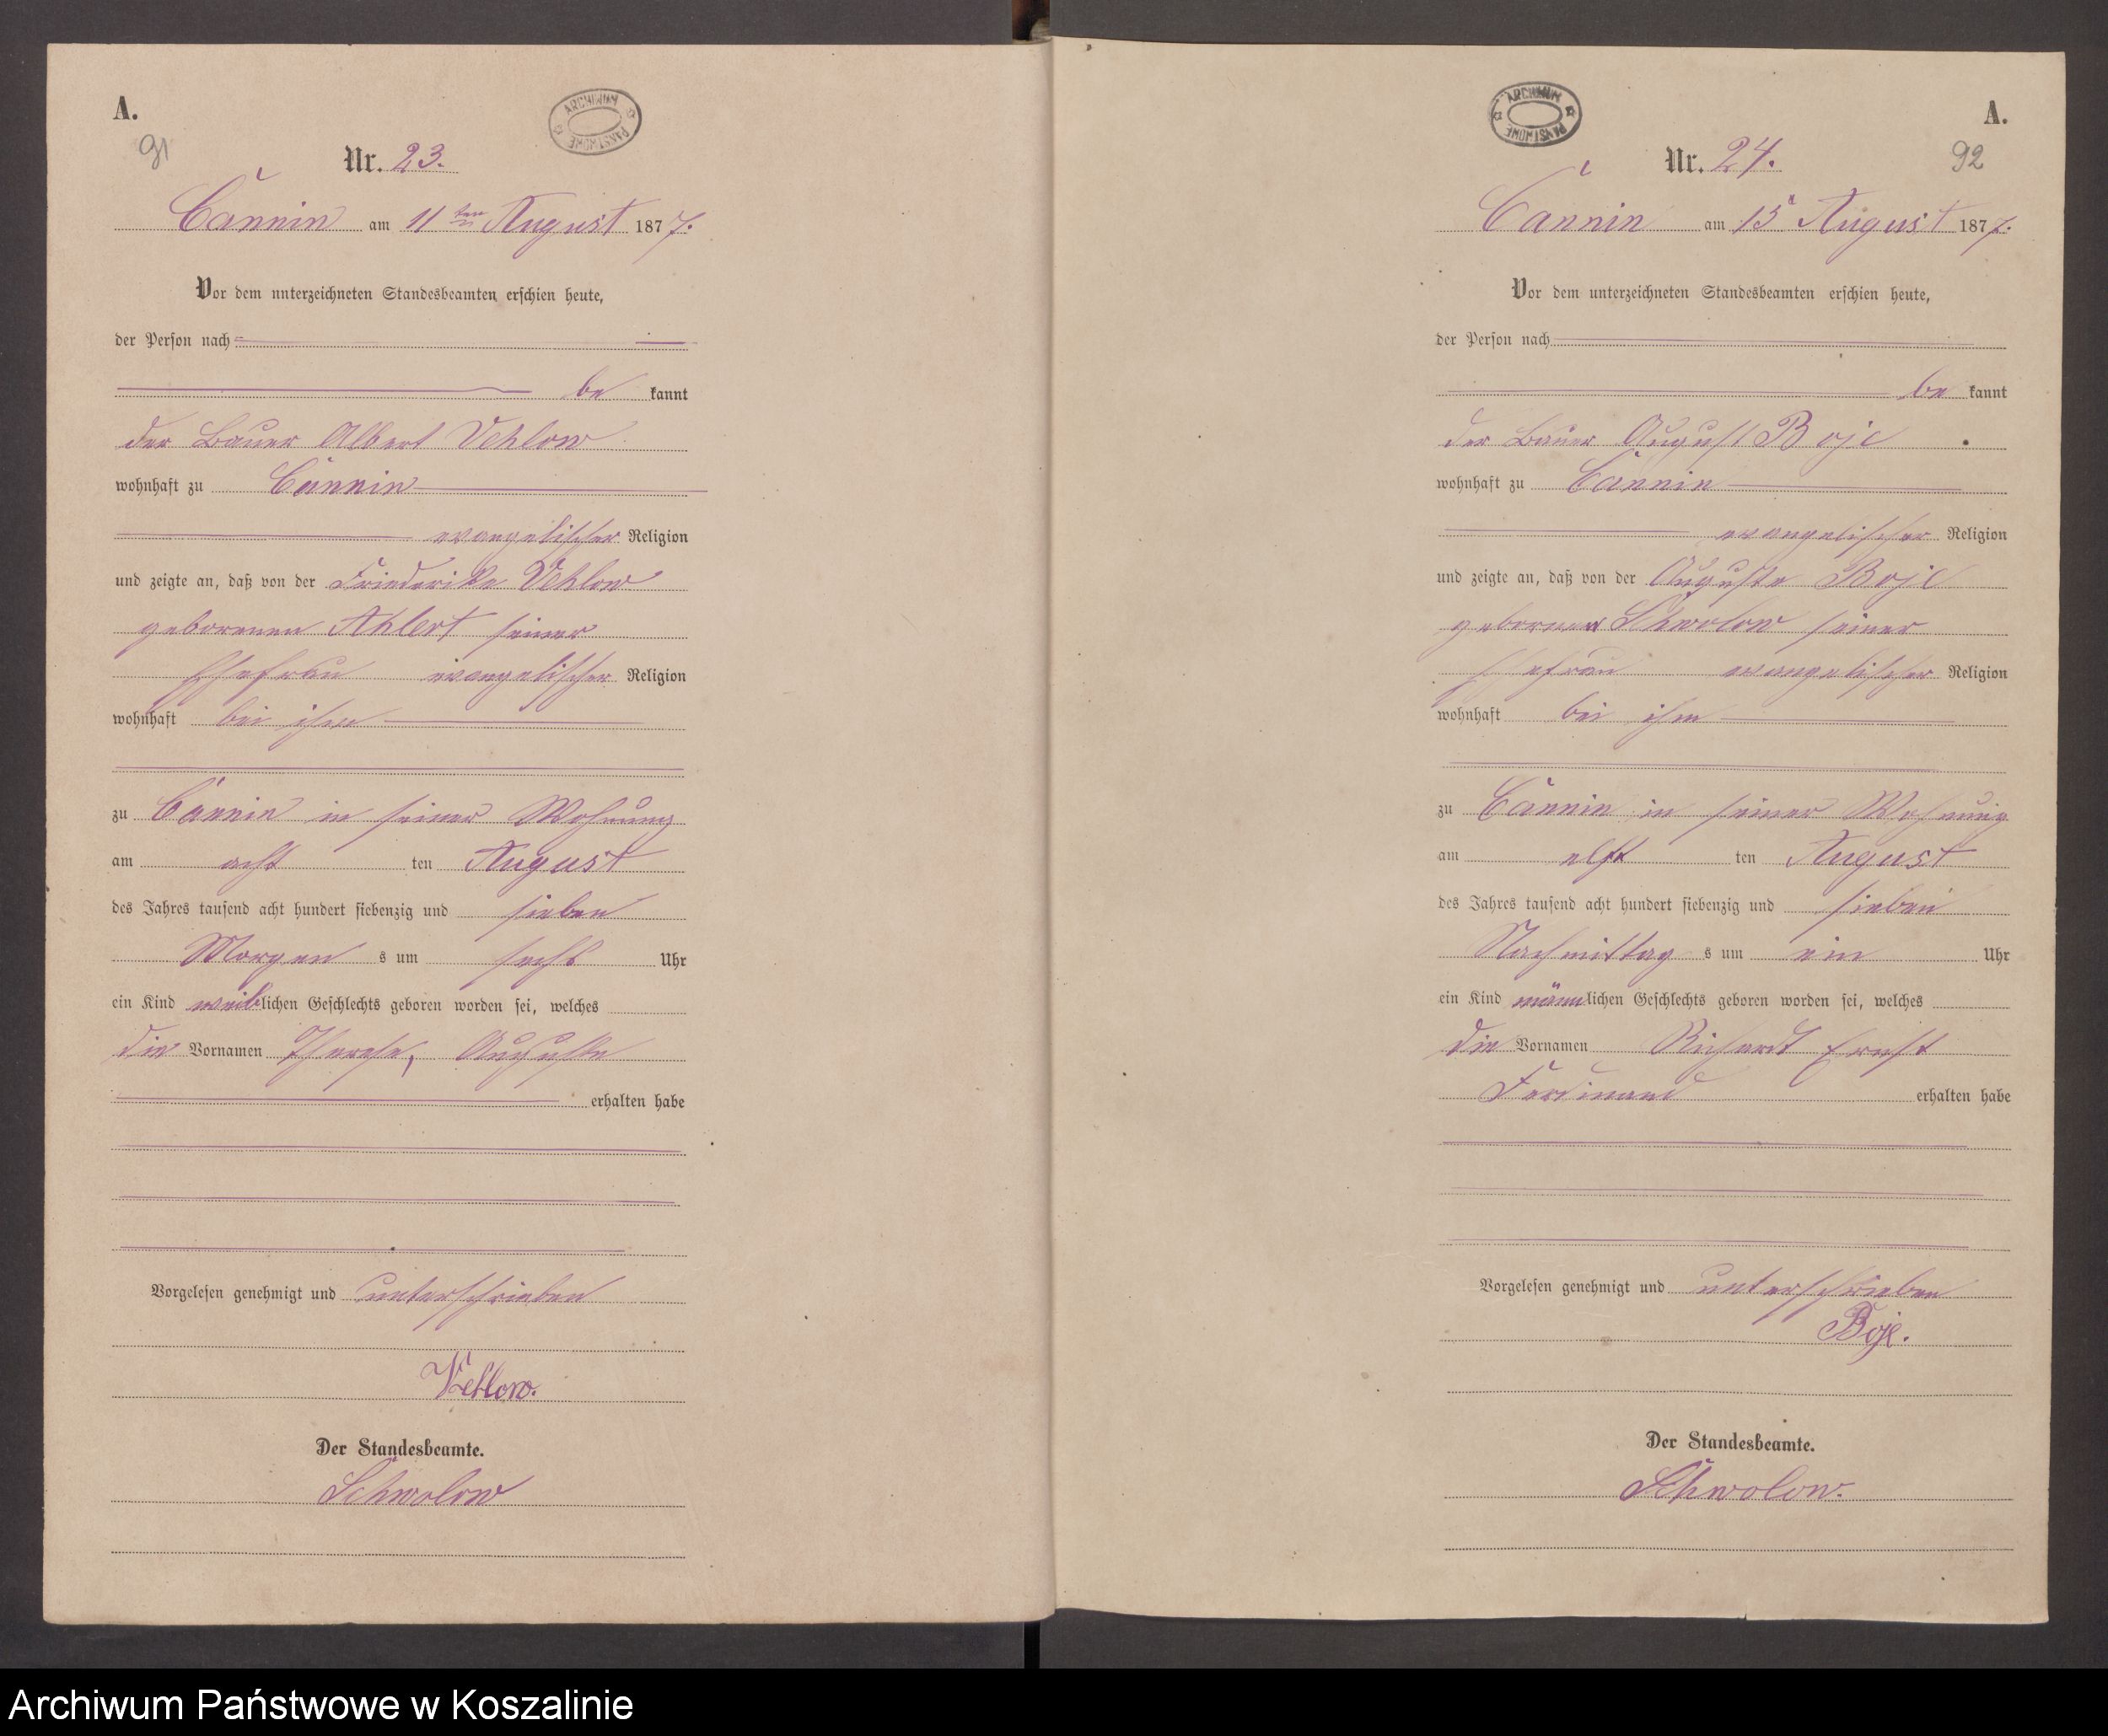 A.
91
ARCHIWUM PAŃSTWOWE
Nr. 23.
Cannin am 11ten August 1877.
Vor dem unterzeichneten Standesbeamten erschien heute,
der Person nach
be kannt
der Bauer Albert Vehlow
wohnhaft zu Cannin
evangelischer Religion
und zeigte an, daß von der Friederike Vehlow
geborenen Ahlert seiner
Ehefrau evangelischer Religion
wohnhaft bei ihm
zu Cannin in seiner Wohnung
am acht ten August
des Jahres tausend acht hundert siebenzig und sieben
Morgen s um sechs Uhr
ein Kind weiblichen Geschlechts geboren worden sei, welches
die Vornamen Therese, Auguste
erhalten habe
Vorgelesen genehmigt und unterschrieben
Vehlow.
Der Standesbeamte.
Schwolow
ARCHIWUM PAŃSTWOWE
A.
92
Nr. 24.
Cannin am 15 August 1877.
Vor dem unterzeichneten Standesbeamten erschien heute,
der Person nach
be kannt
der Bauer August Boje
wohnhaft zu Cannin
evangelischer Religion
und zeigte an, daß von der Auguste Boje
geborenen Schwolow seiner
Ehefrau evangelischer Religion
wohnhaft bei ihm
zu Cannin in seiner Wohnung
am elf ten August
des Jahres tausend acht hundert siebenzig und sieben
Nachmittag s um ein Uhr
ein Kind männlichen Geschlechts geboren worden sei, welches
die Vornamen Richardt Ernst
Ferdinand erhalten habe
Vorgelesen genehmigt und unterschrieben
Boje.
Der Standesbeamte.
Schwolow.
Archiwum Państwowe w Koszalinie